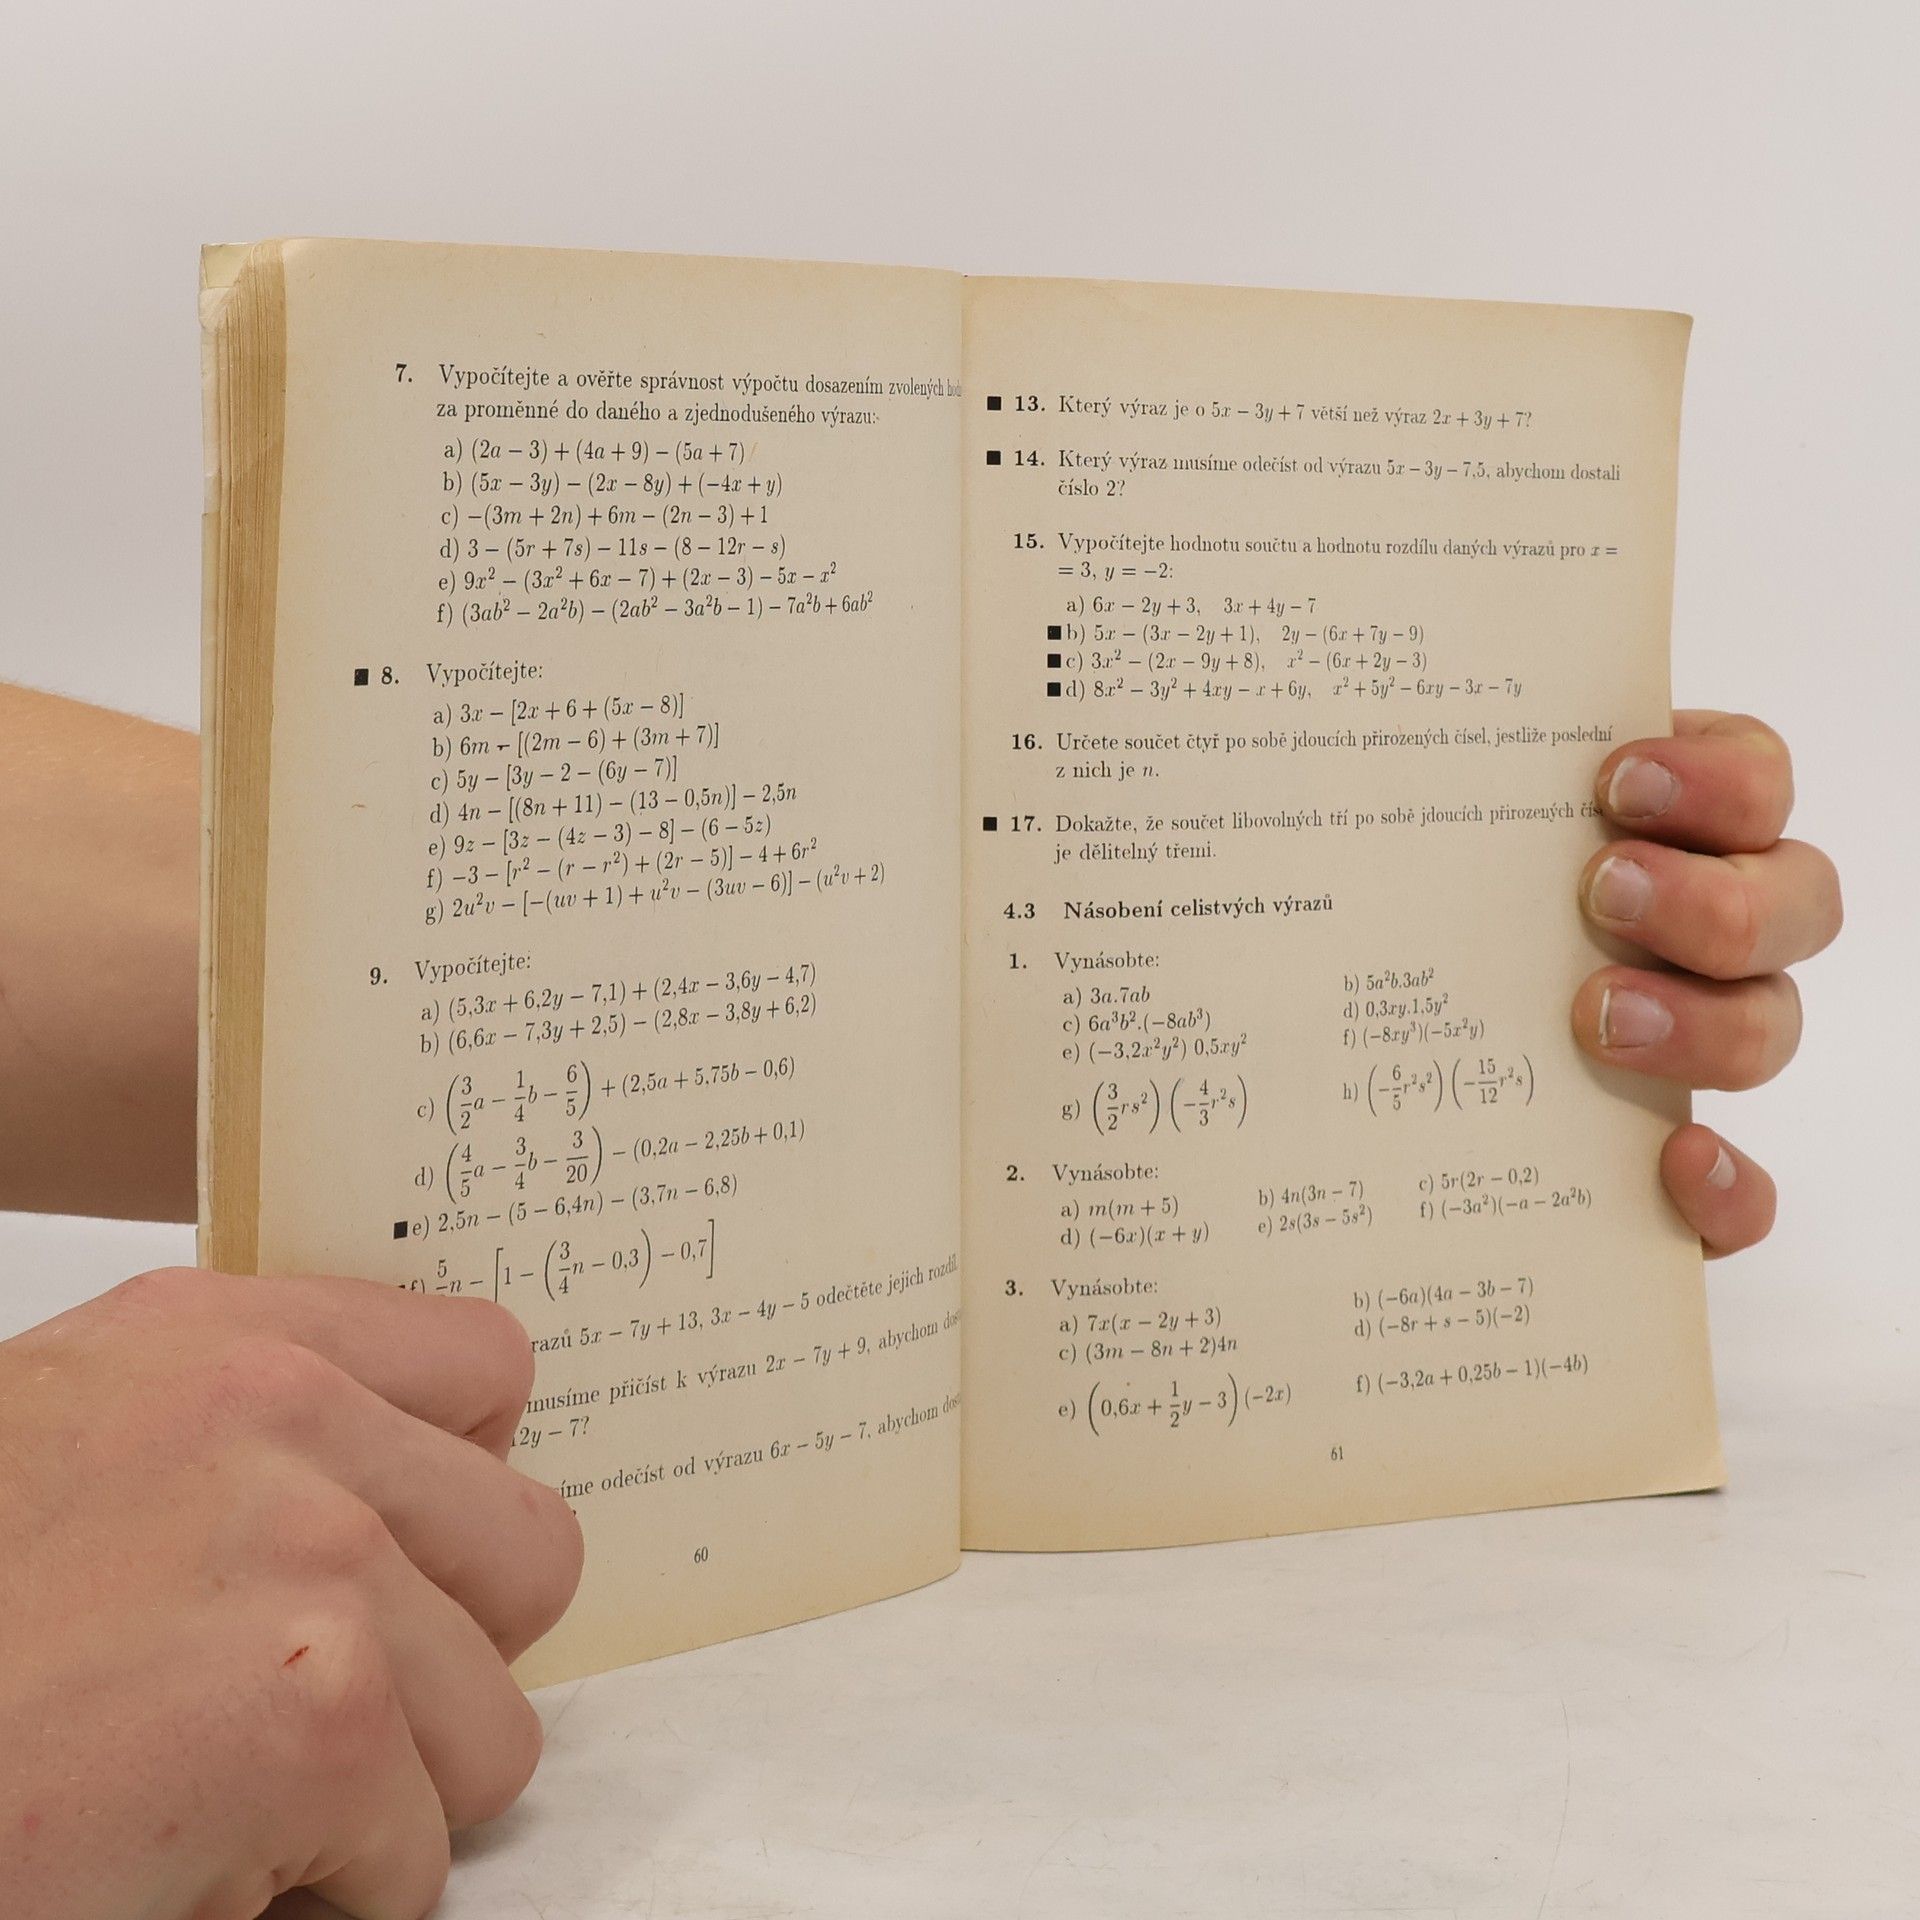 7. Vypočítejte a ověřte správnost výpočtu dosazením zvolených
za proměnné do daného a zjednodušeného výrazu:
a) (2a − 3) + (4a + 9) − (5a + 7)
b) (5x − 3y) − (2x − 8y) + (−4x + y)
c) −(3m + 2n) + 6m − (2n − 3) + 1
d) 3 − (5r + 7s) − 11s − (8 − 12r − s)
e) 9x² − (3x² + 6x − 7) + (2x − 3) − 5x − x²
f) (3ab² − 2a²b) − (2ab² − 3a²b − 1) − 7a²b + 6ab²
■ 8. Vypočítejte:
a) 3x − [2x + 6 + (5x − 8)]
b) 6m − [(2m − 6) + (3m + 7)]
c) 5y − [3y − 2 − (6y − 7)]
d) 4n − [(8n + 11) − (13 − 0,5n)] − 2,5n
e) 9z − [3z − (4z − 3) − 8] − (6 − 5z)
f) −3 − [r² − (r − r²) + (2r − 5)] − 4 + 6r²
g) 2u²v − [−(uv + 1) + u²v − (3uv − 6)] − (u²v + 2)
9. Vypočítejte:
a) (5,3x + 6,2y − 7,1) + (2,4x − 3,6y − 4,7)
b) (6,6x − 7,3y + 2,5) − (2,8x − 3,8y + 6,2)
c) (3/2 a − 1/4 b − 6/5) + (2,5a + 5,75b − 0,6)
d) (4/5 a − 3/4 b − 3/20) − (0,2a − 2,25b + 0,1)
■ e) 2,5n − (5 − 6,4n) − (3,7n − 6,8)
f) n − [1 − (3/4 n − 0,3) − 0,7]
5x − 7y + 13, 3x − 4y − 5 odečtěte jejich
musíme přičíst k výrazu 2x − 7y + 9, abychom
2y − 7?
odečíst od výrazu 6x − 5y − 7, abychom
60
■ 13. Který výraz je o 5x − 3y + 7 větší než výraz 2x + 3y + 7?
■ 14. Který výraz musíme odečíst od výrazu 5x − 3y − 7,5, abychom dostali
číslo 2?
15. Vypočítejte hodnotu součtu a hodnotu rozdílu daných výrazů pro x =
= 3, y = −2:
a) 6x − 2y + 3, 3x + 4y − 7
■ b) 5x − (3x − 2y + 1), 2y − (6x + 7y − 9)
■ c) 3x² − (2x − 9y + 8), x² − (6x + 2y − 3)
■ d) 8x² − 3y² + 4xy − x + 6y, x² + 5y² − 6xy − 3x − 7y
16. Určete součet čtyř po sobě jdoucích přirozených čísel, jestliže poslední
z nich je n.
■ 17. Dokažte, že součet libovolných tří po sobě jdoucích přirozených
je dělitelný třemi.
4.3 Násobení celistvých výrazů
1. Vynásobte:
a) 3a.7ab b) 5a²b.3ab²
c) 6a³b².(−8ab³) d) 0,3xy.1,5y²
e) (−3,2x²y²) 0,5xy² f) (−8xy³)(−5x²y)
g) (3/2 rs²) (−4/3 r²s) h) (−6/5 r²s²) (−15/12 r²s)
2. Vynásobte:
a) m(m + 5) b) 4n(3n − 7) c) 5r(2r − 0,2)
d) (−6x)(x + y) e) 2s(3s − 5s²) f) (−3a²)(−a − 2a²b)
3. Vynásobte:
a) 7x(x − 2y + 3) b) (−6a)(4a − 3b − 7)
c) (3m − 8n + 2)4n d) (−8r + s − 5)(−2)
e) (0,6x + 1/2 y − 3)(−2x) f) (−3,2a + 0,25b − 1)(−4b)
61